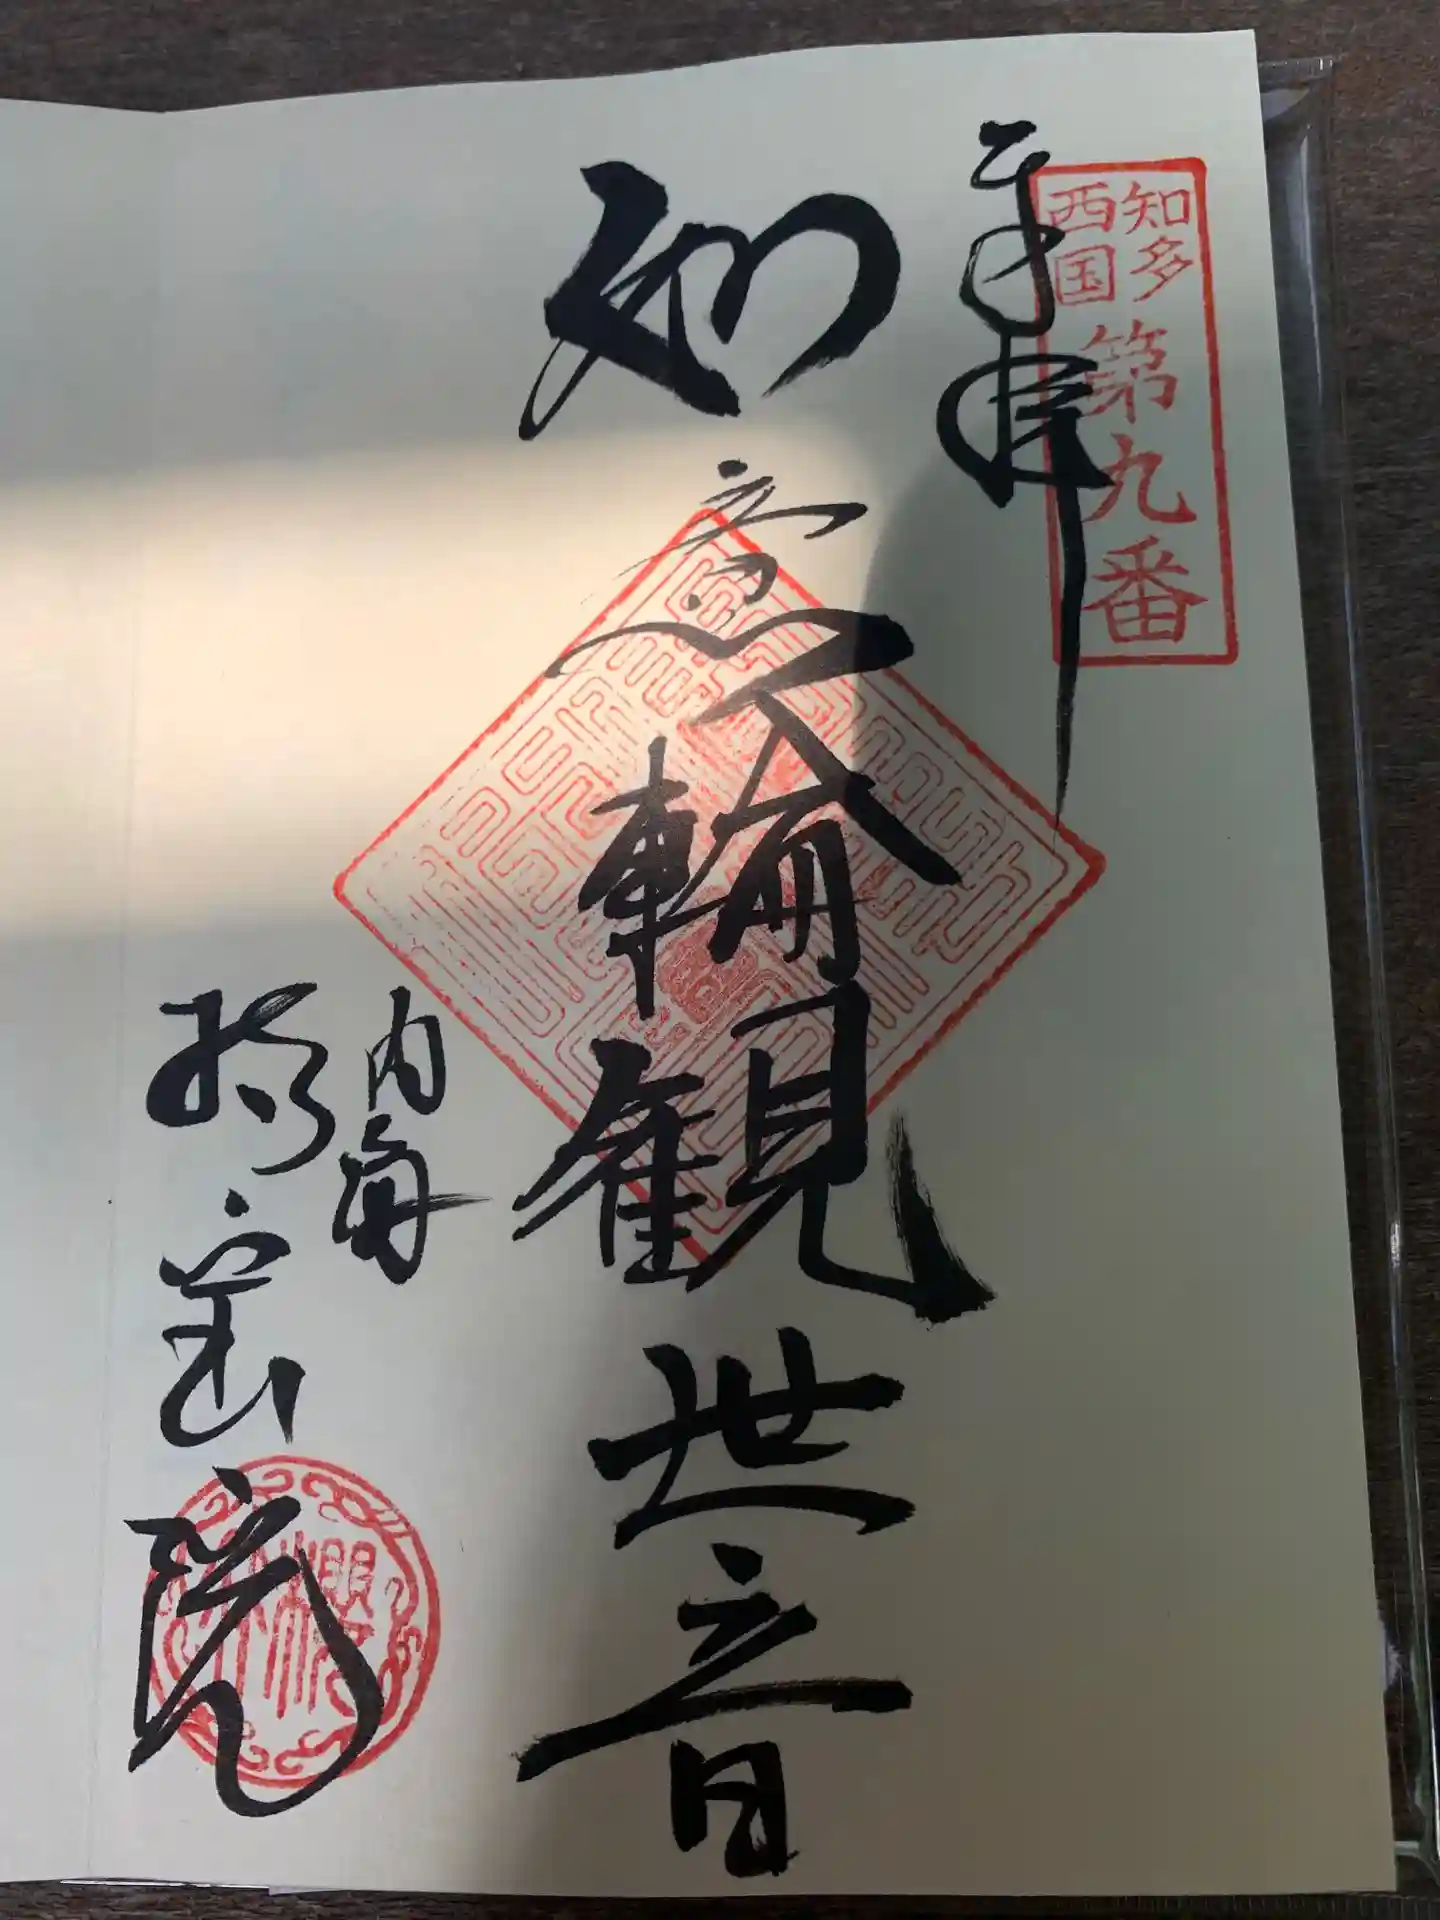 知多
西国
第九番
奉拝
如意輪観世音
内海
持宝院